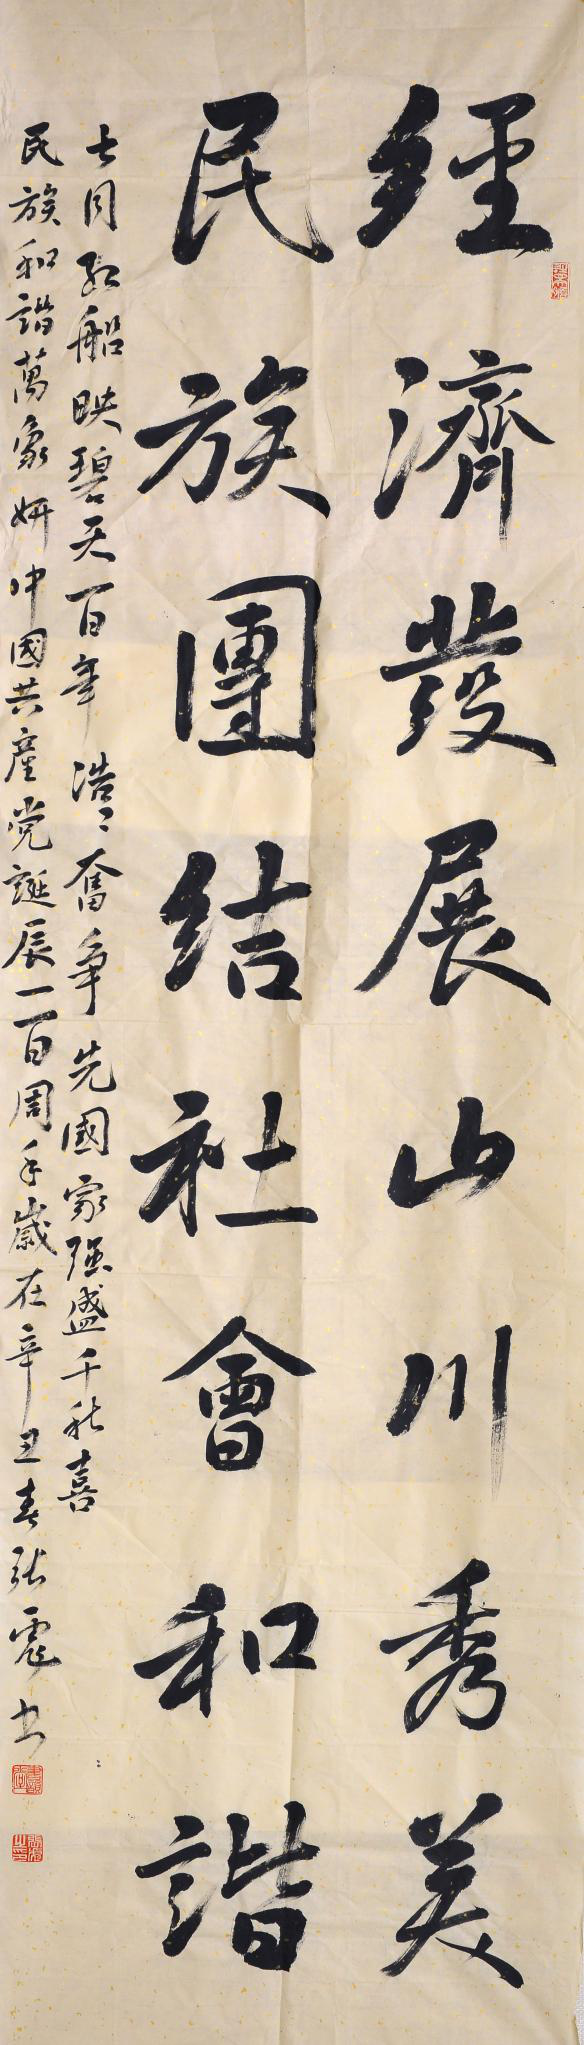 經濟發展山川秀美
民族團結社會和諧
七月紅船映碧天百年浩〻奮爭先國家强盛千秋喜
民族和諧萬象妍中國共産党誕辰一百周年歲在辛丑春張霆书